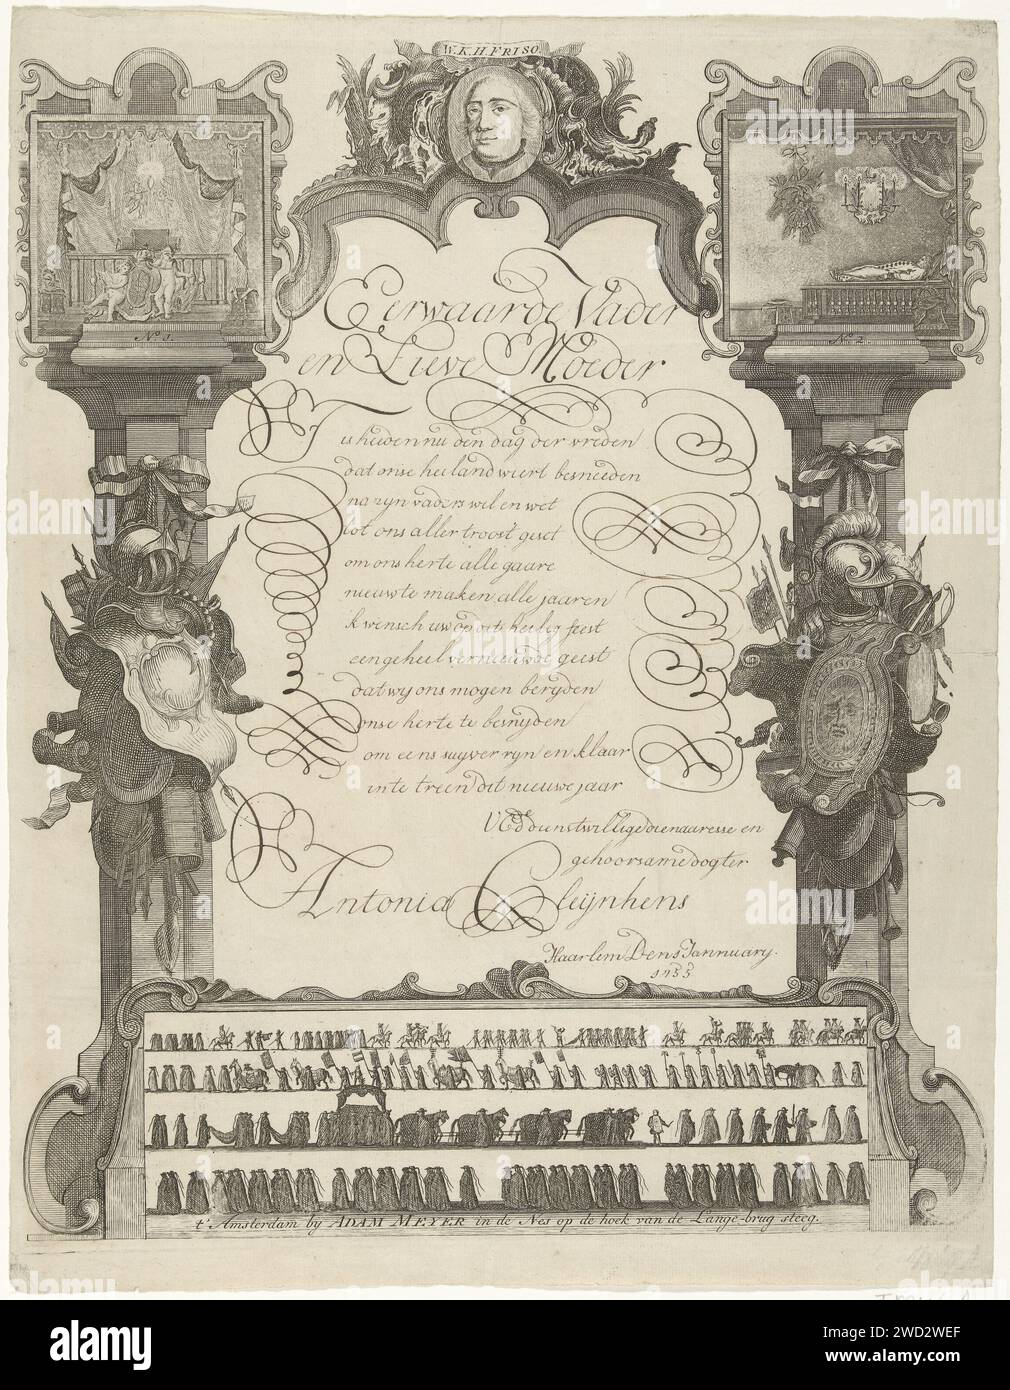 W. K. H. FRISO
No. 1.
No. 2.
Eerwaarde Vader
en Lieve Moeder
T is heeden nu den dag der vreden
dat onse heeland wiert besneeden
na zyn vaders wil en wet
tot ons aller troost geset
om ons herte alle gaare
nieuw te maken alle jaaren
ik wensch uw op dit heilig feest
een geheel vernieuwde geest
dat wy ons mogen beryden
onse herte te besnyden
om eens suyver ryn en klaar
in te treen dit nieuwe jaar
UEd dunstwillige dienaaresse en
gehoorsame dogter
Antonia Cleijnhens
Haarlem Den 1 Jannuary.
1755
t'Amsterdam by ADAM MEYER in de Nes op de hoek van de Lange-brug steeg.
alamy
alamy
Image ID: 2WD2WEF
www.alamy.com